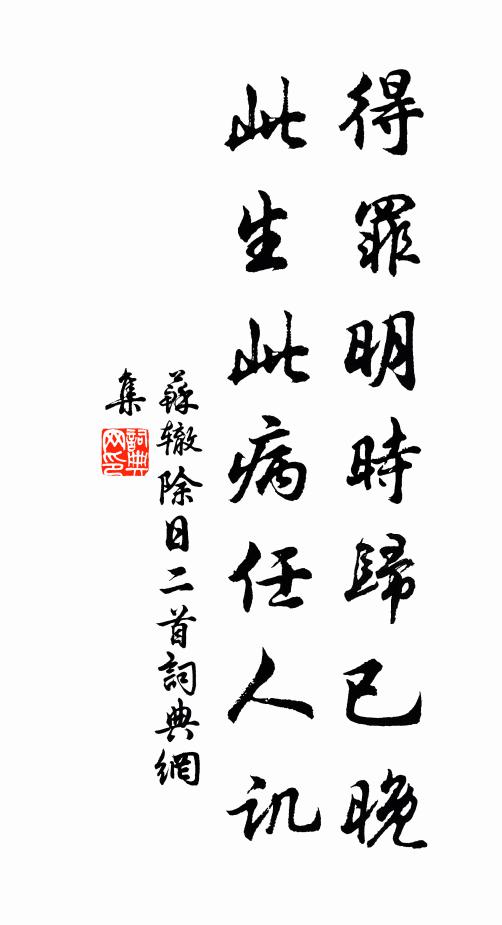 得罪明時歸已晚
此生此病任人讥
蘇辙除日二首詞典網
集
詞典網印